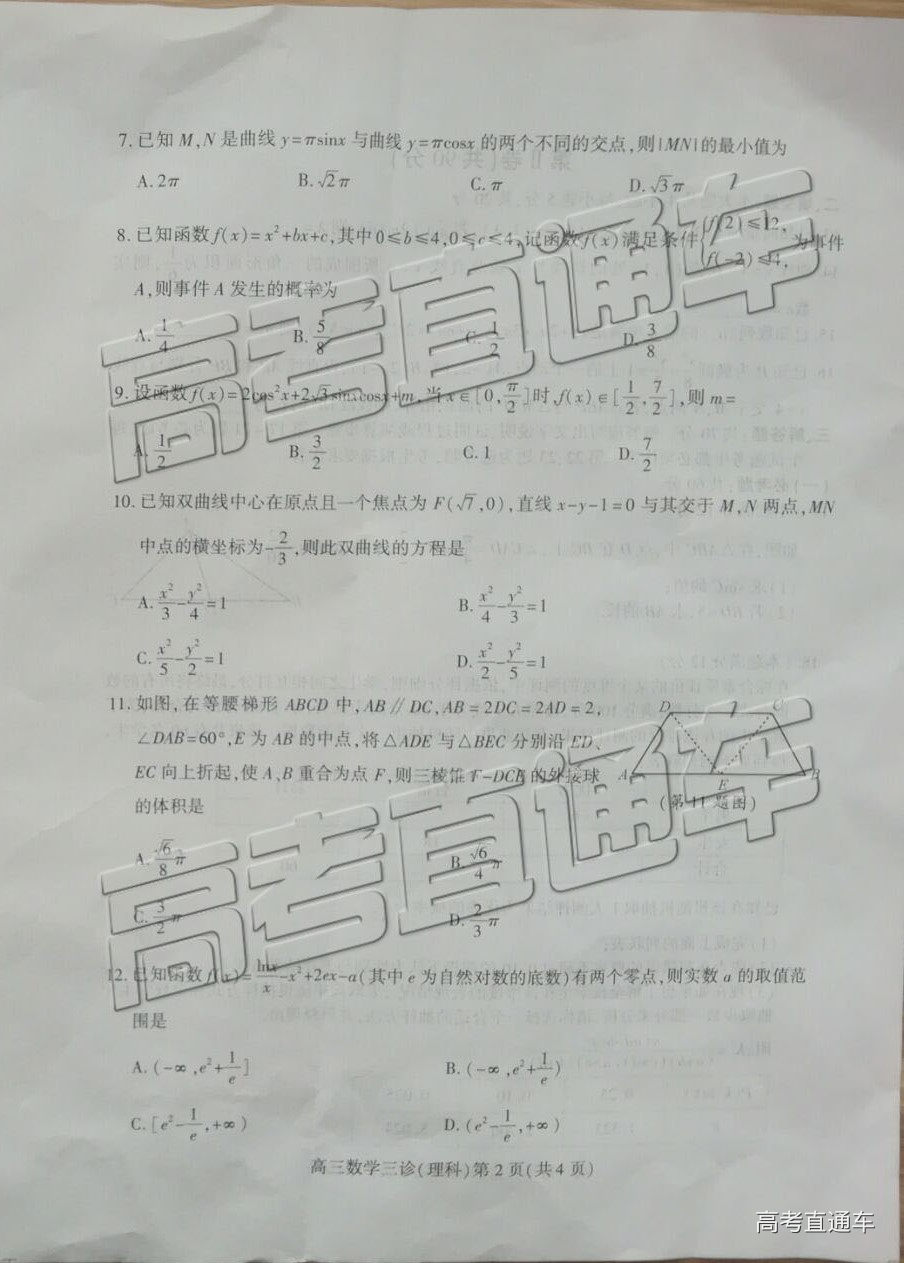 7.已知 M,N 是曲线 y=πsinx 与曲线 y=πcosx 的两个不同的交点,则|MN|的最小值为
A. 2π B. √2π C. π D. √3π
8.已知函数 f(x)=x²+bx+c,其中 0≤b≤4,0≤c≤4,记函数 f(x)满足条件{f(2)≤12, f(-2)≤4, 为事件
A,则事件 A 发生的概率为
A. 1/4 B. 5/8 C. 1/2 D. 3/8
9.设函数 f(x)=2cos²x+2√3sinxcosx+m,当 x∈[0,π/2]时,f(x)∈[1/2,7/2],则 m=
A. 1/2 B. 3/2 C. 1 D. 7/2
10.已知双曲线中心在原点且一个焦点为 F(√7,0),直线 x-y-1=0 与其交于 M,N 两点,MN
中点的横坐标为-2/3,则此双曲线的方程是
A. x²/3-y²/4=1 B. x²/4-y²/3=1
C. x²/5-y²/2=1 D. x²/2-y²/5=1
11.如图,在等腰梯形 ABCD 中,AB∥DC,AB=2DC=2AD=2,
∠DAB=60°,E 为 AB 的中点,将△ADE 与△BEC 分别沿 ED、
EC 向上折起,使 A、B 重合为点 F,则三棱锥 F-DCE 的外接球
的体积是
D C
A E B
(第 11 题图)
A. √6/8π B. √6/4π
C. 3/2π D. 2/3π
12.已知函数 f(x)=lnx/x-x²+2ex-a(其中 e 为自然对数的底数)有两个零点,则实数 a 的取值范
围是
A. (-∞,e²+1/e] B. (-∞,e²+1/e)
C. [e²-1/e,+∞) D. (e²-1/e,+∞)
高三数学三诊(理科)第 2 页(共 4 页)
高考直通车
高考直通车
高考直通车